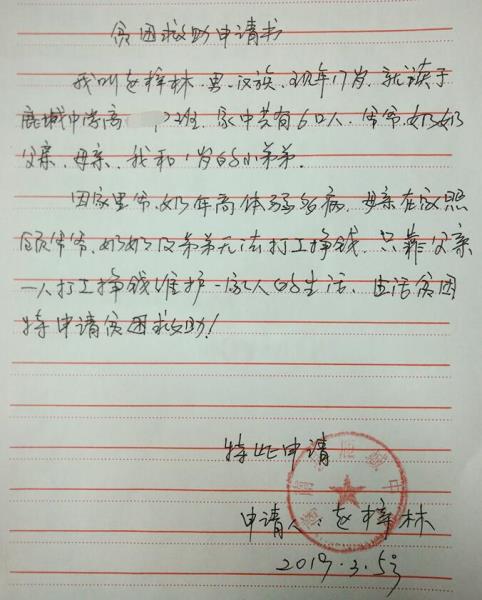 贫困救助申请书
我叫赵梓林.男.汉族、现年17岁,就读于
鹿城中学高 2班.家中共有6口人.爷爷.奶奶
父亲、母亲、我和1岁的小弟弟.
因家里爷.奶年高体弱多病,母亲在家照
顾爷爷、奶奶及弟弟无法打工挣钱.只靠父亲
一人打工挣钱维护一家人的生活、生活贫困
特申请贫困救助!
特此申请
申请人:赵梓林
2019.3.5号